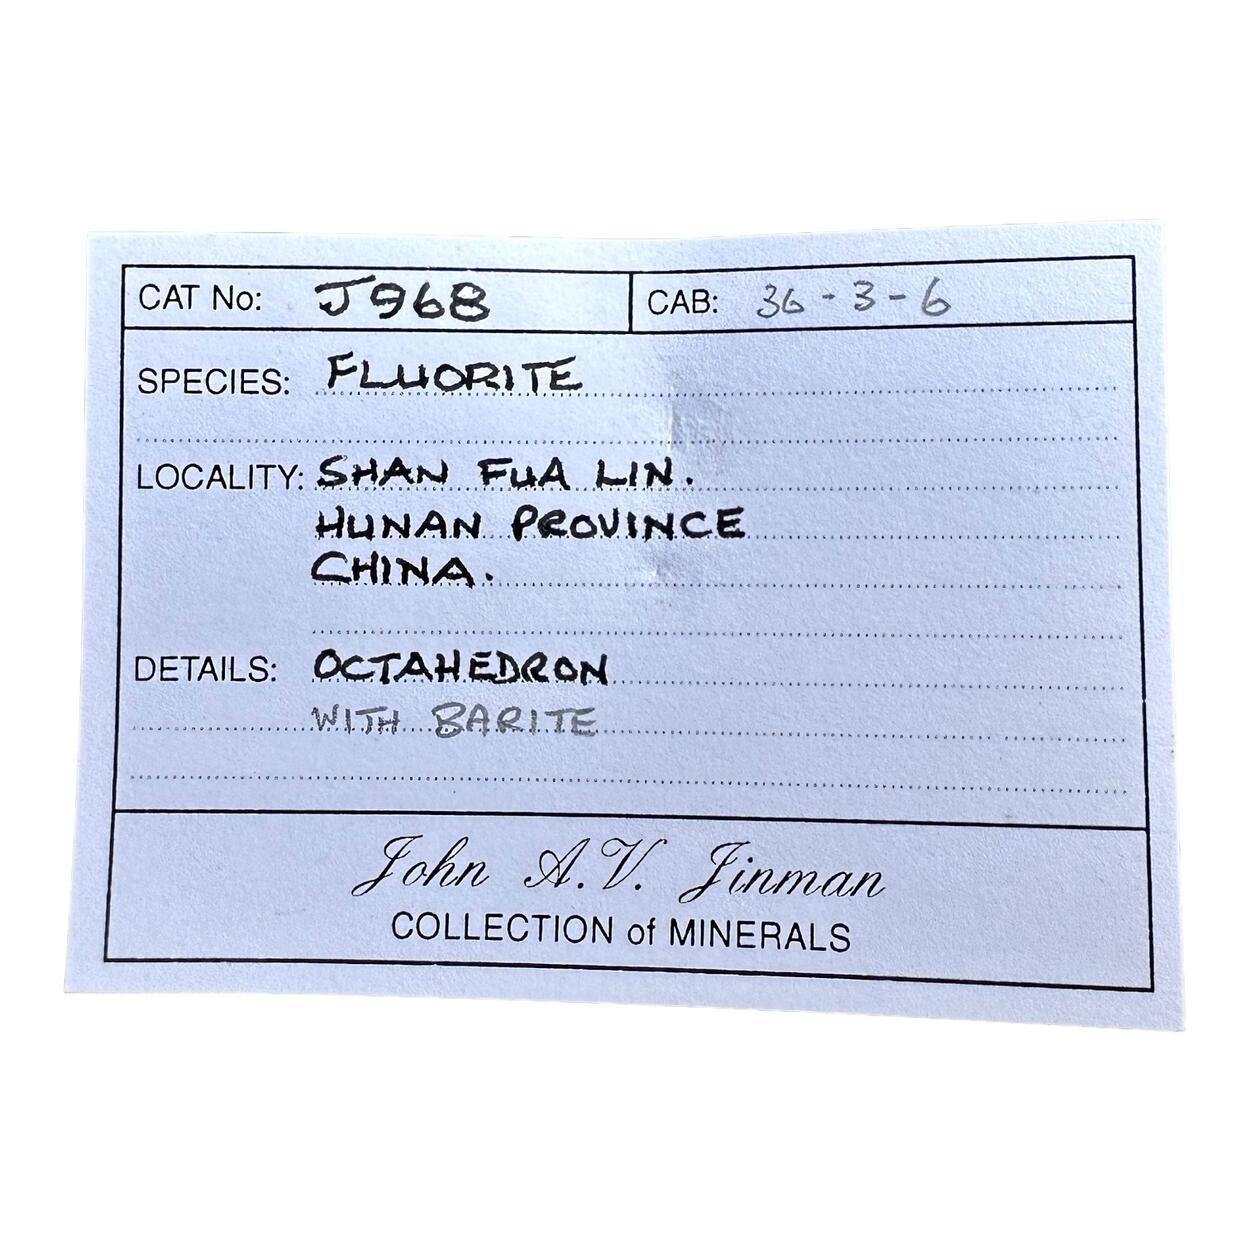 CAT No: J968 CAB: 36-3-6
SPECIES: FLUORITE
LOCALITY: SHAN FUA LIN.
HUNAN PROVINCE
CHINA.
DETAILS: OCTAHEDRON
WITH BARITE
John A.V. Jinman
COLLECTION of MINERALS